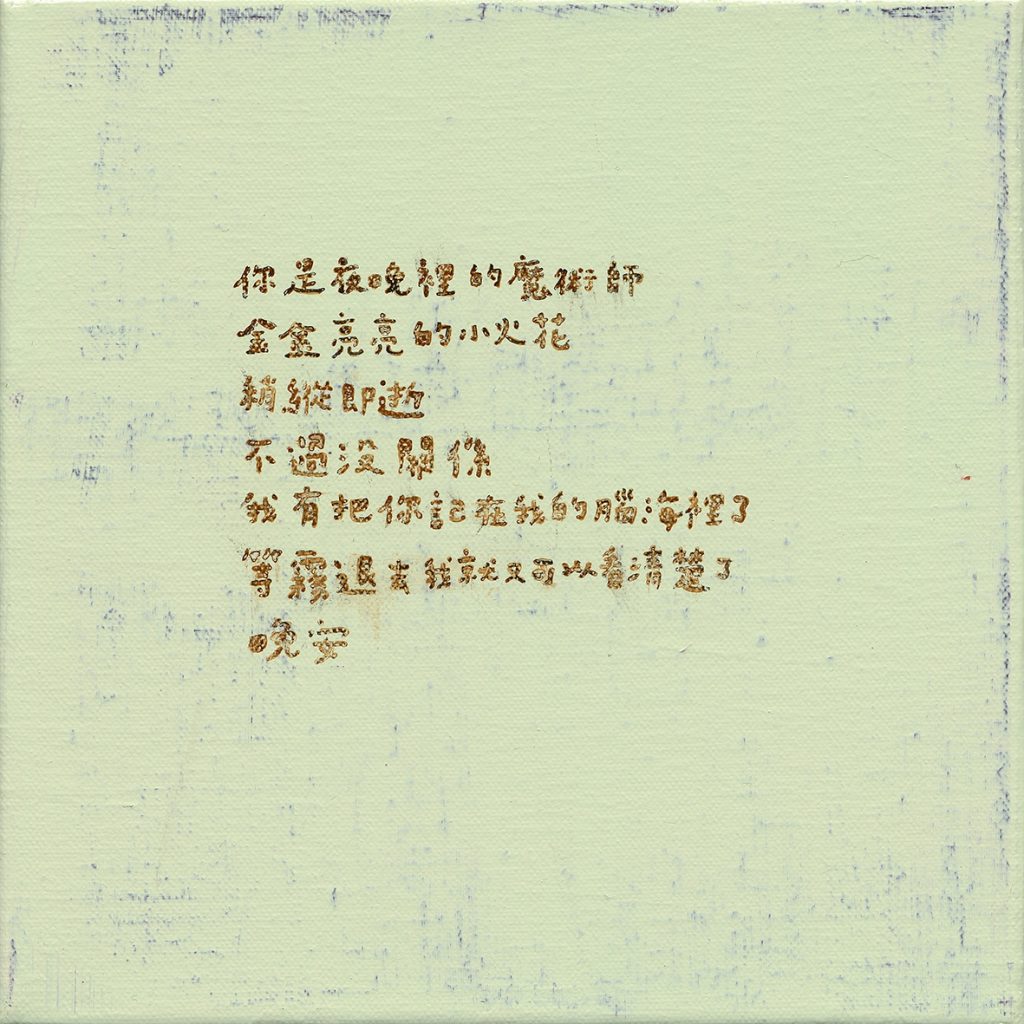 你是夜晚裡的魔術師
金金亮亮的小火花
稍縱即逝
不過没關係
我有把你記在我的腦海裡了
等霧退去我就又可以看清楚了
晚安